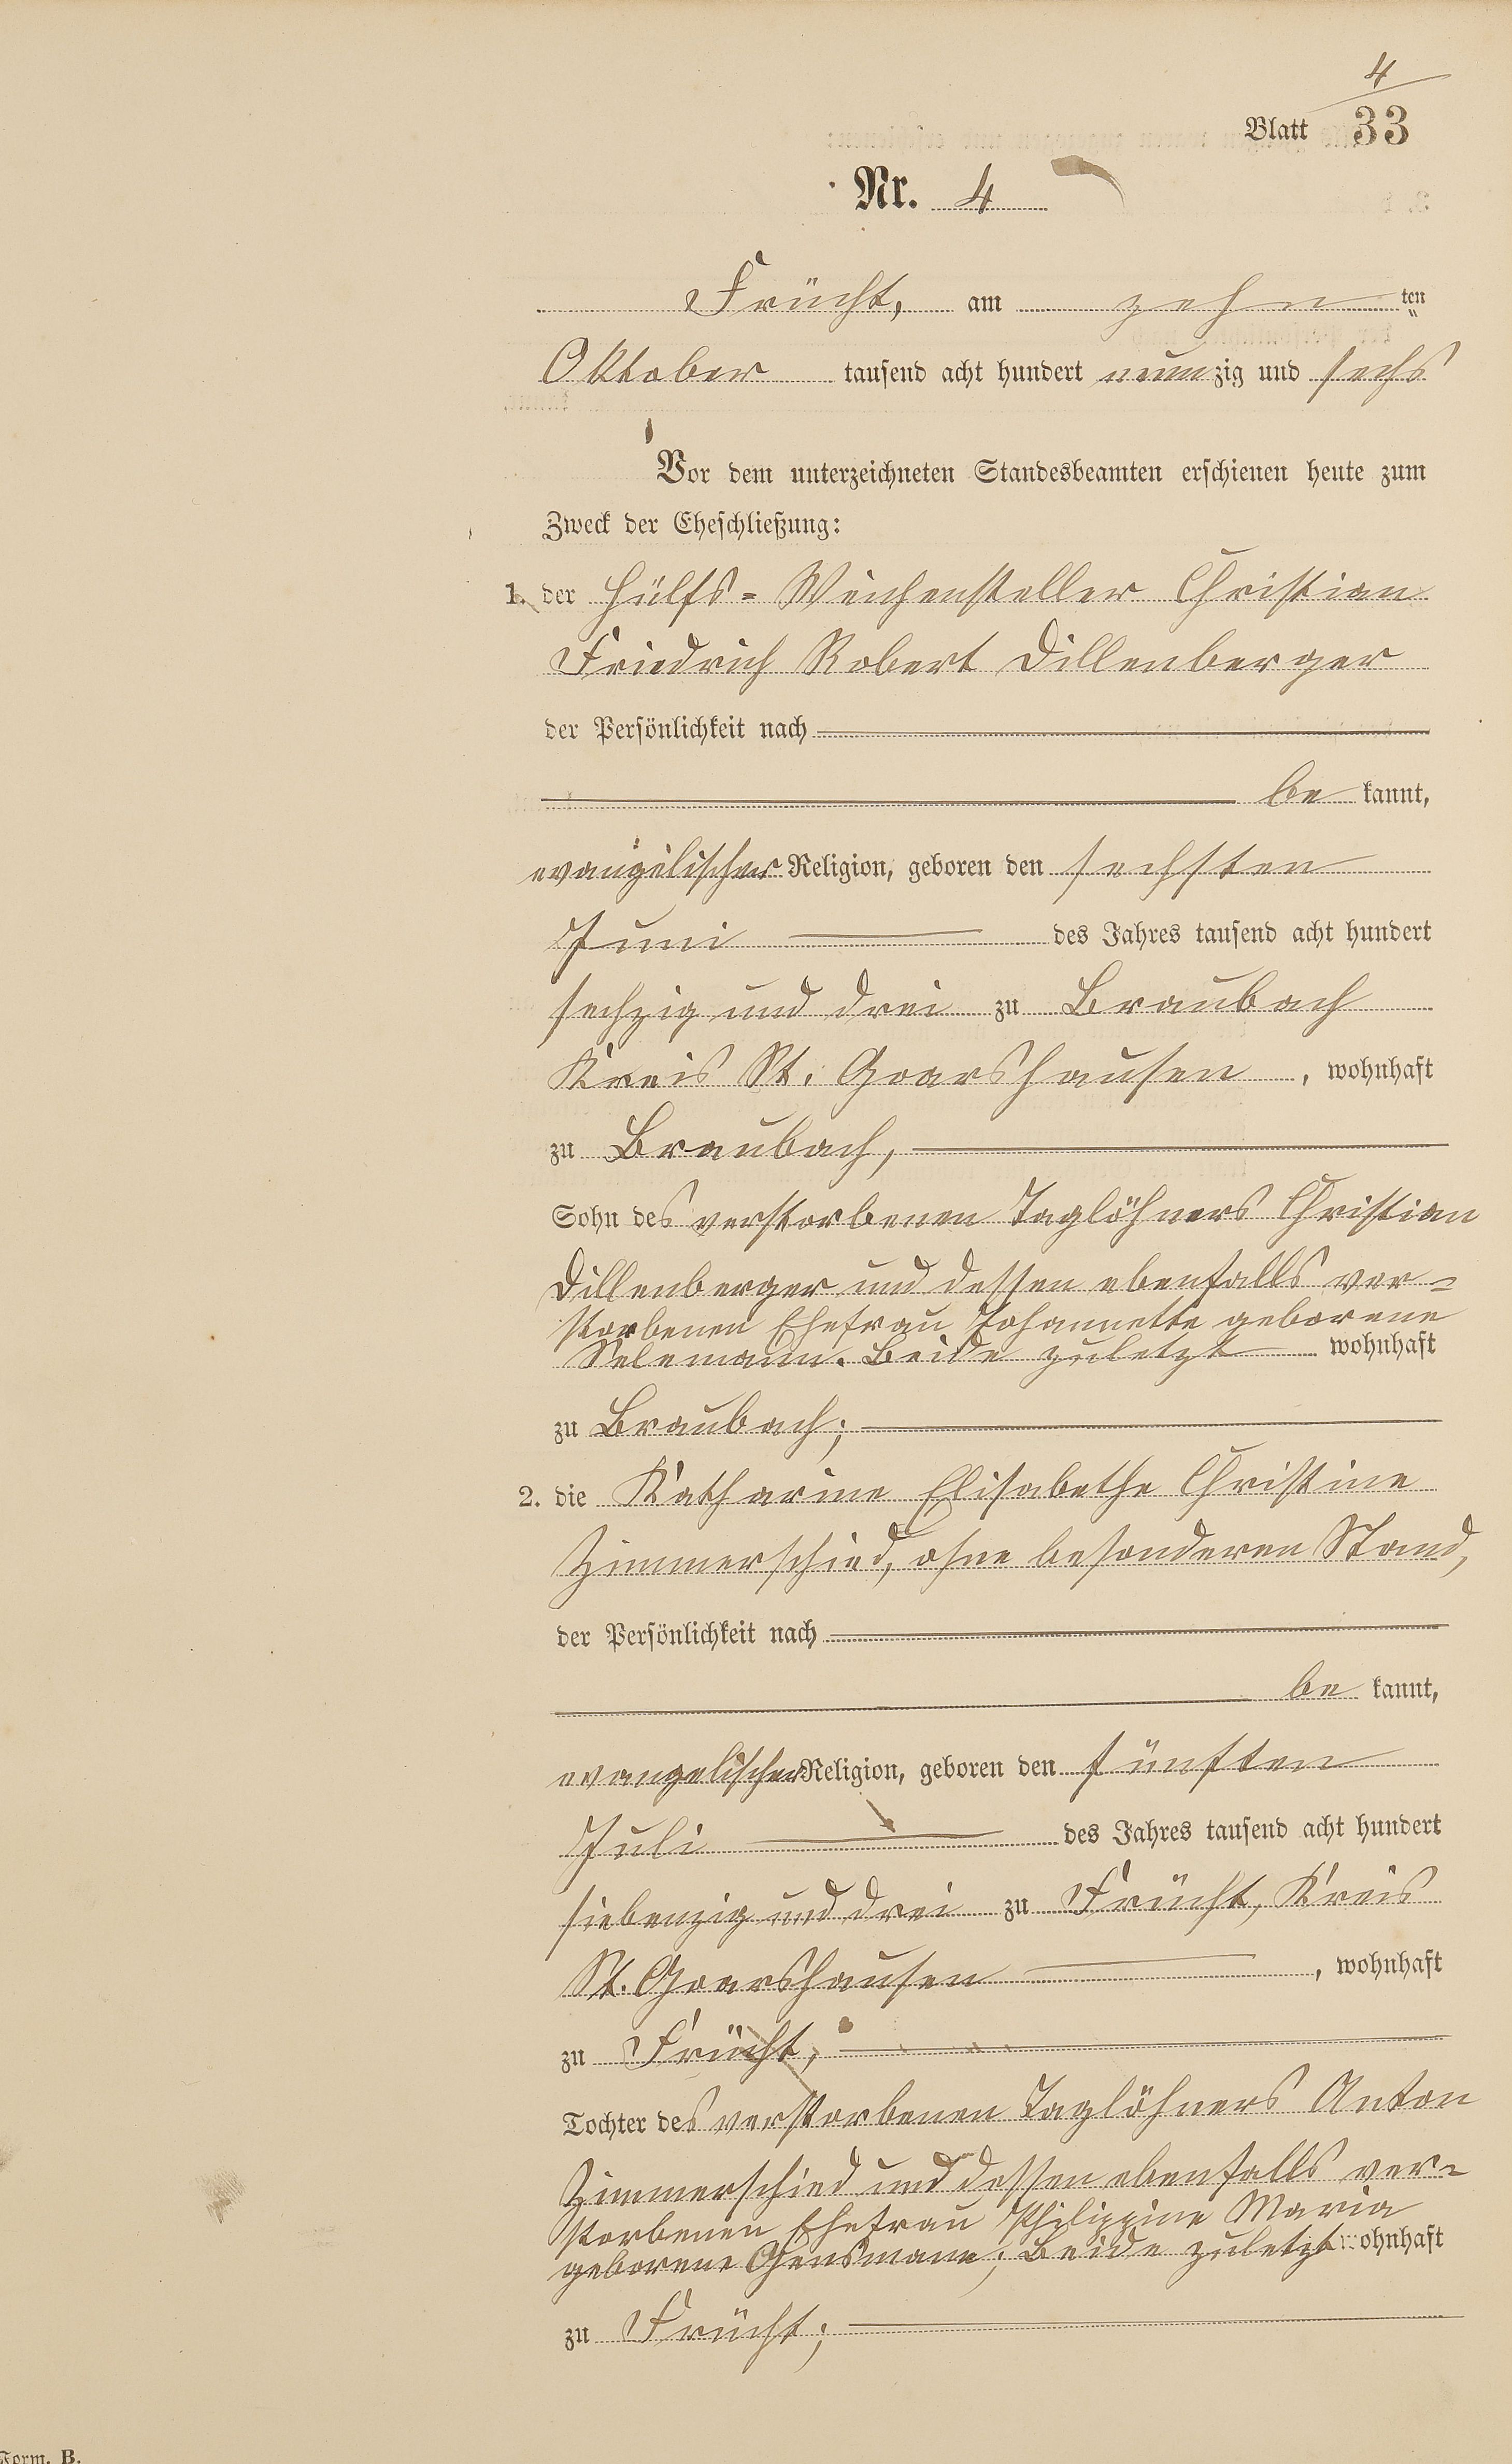 4
Blatt 33
Nr. 4
Frücht, am zehn ten
Oktober tausend acht hundert neunzig und sechs
Vor dem unterzeichneten Standesbeamten erschienen heute zum
Zweck der Eheschließung:
1. der Hülfs-Weichensteller Christian
Friedrich Robert Dillenberger
der Persönlichkeit nach
be kannt,
evangelischer Religion, geboren den sechsten
Juni des Jahres tausend acht hundert
sechzig und drei zu Braubach
Kreis St. Goarshausen, wohnhaft
zu Braubach,
Sohn des verstorbenen Taglöhners Christian
Dillenberger und dessen ebenfalls ver-
storbenen Ehefrau Johannette geborene
Selemann. Beide zuletzt wohnhaft
zu Braubach;
2. die Katharine Elisabethe Christine
Zimmerschied, ohne besonderen Stand,
der Persönlichkeit nach
be kannt,
evangelischer Religion, geboren den fünften
Juli des Jahres tausend acht hundert
siebenzig und drei zu Frücht, Kreis
St. Goarshausen, wohnhaft
zu Frücht,
Tochter des verstorbenen Taglöhners Anton
Zimmerschied und dessen ebenfalls ver-
storbenen Ehefrau Philippine Maria
geborene Gensmann; Beide zuletzt wohnhaft
zu Frücht;
Form. B.